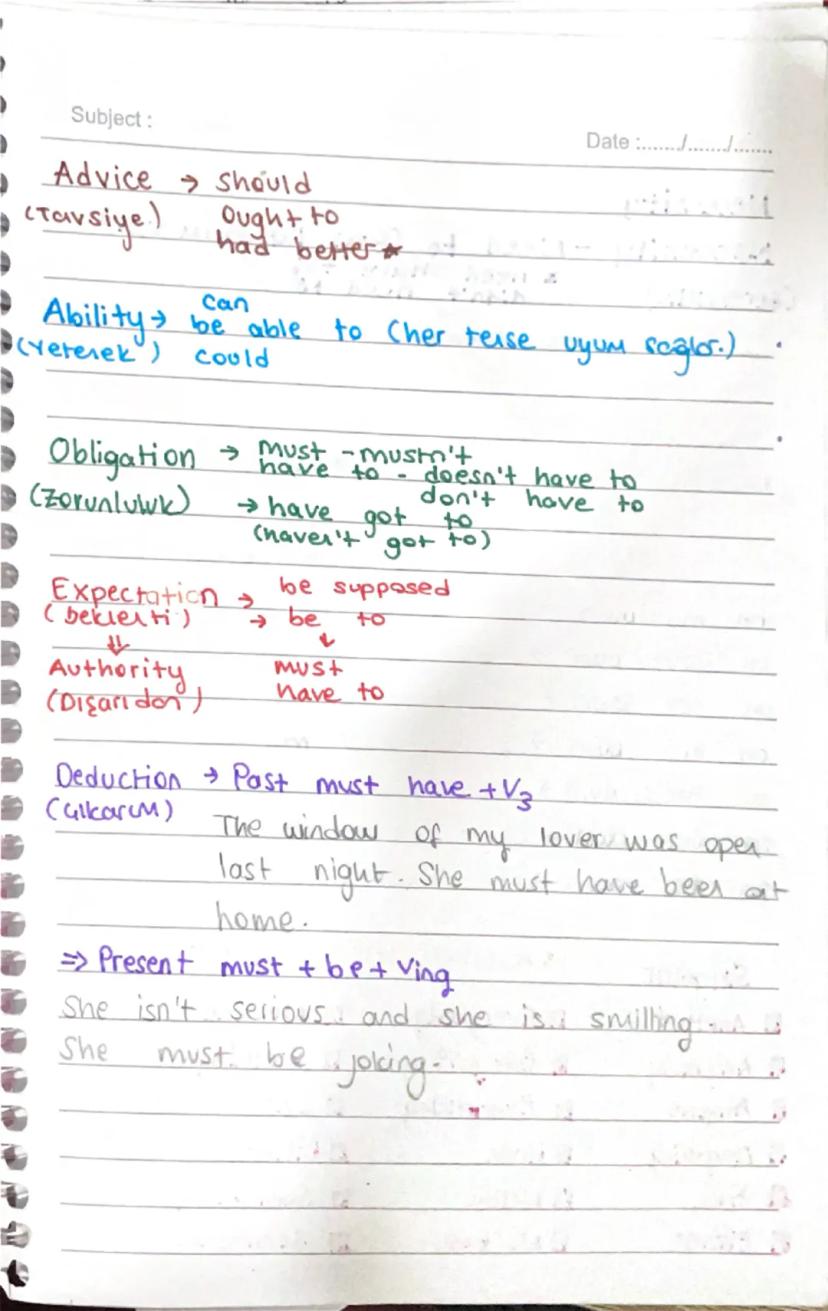 Subject :
Date :....../......./.......
Advice → should
(Tavsiye) ought to
had better *
can
Ability → be able to (her tense uyum sağlar.)
(Yetenek) could
Obligation → must - mustn't
have to - doesn't have to
don't have to
(Zorunluluk) → have got to
(haven't got to)
Expectation → be supposed
(beklenti) → be to
⇓ ↓
Authority must
(Dışarıdan) have to
Deduction → Past must have + V3
(Çıkarım) The window of my lover was open
last night. She must have been at
home.
⇒ Present must + be + Ving
She isn't serious and she is smilling.
She must be joking.